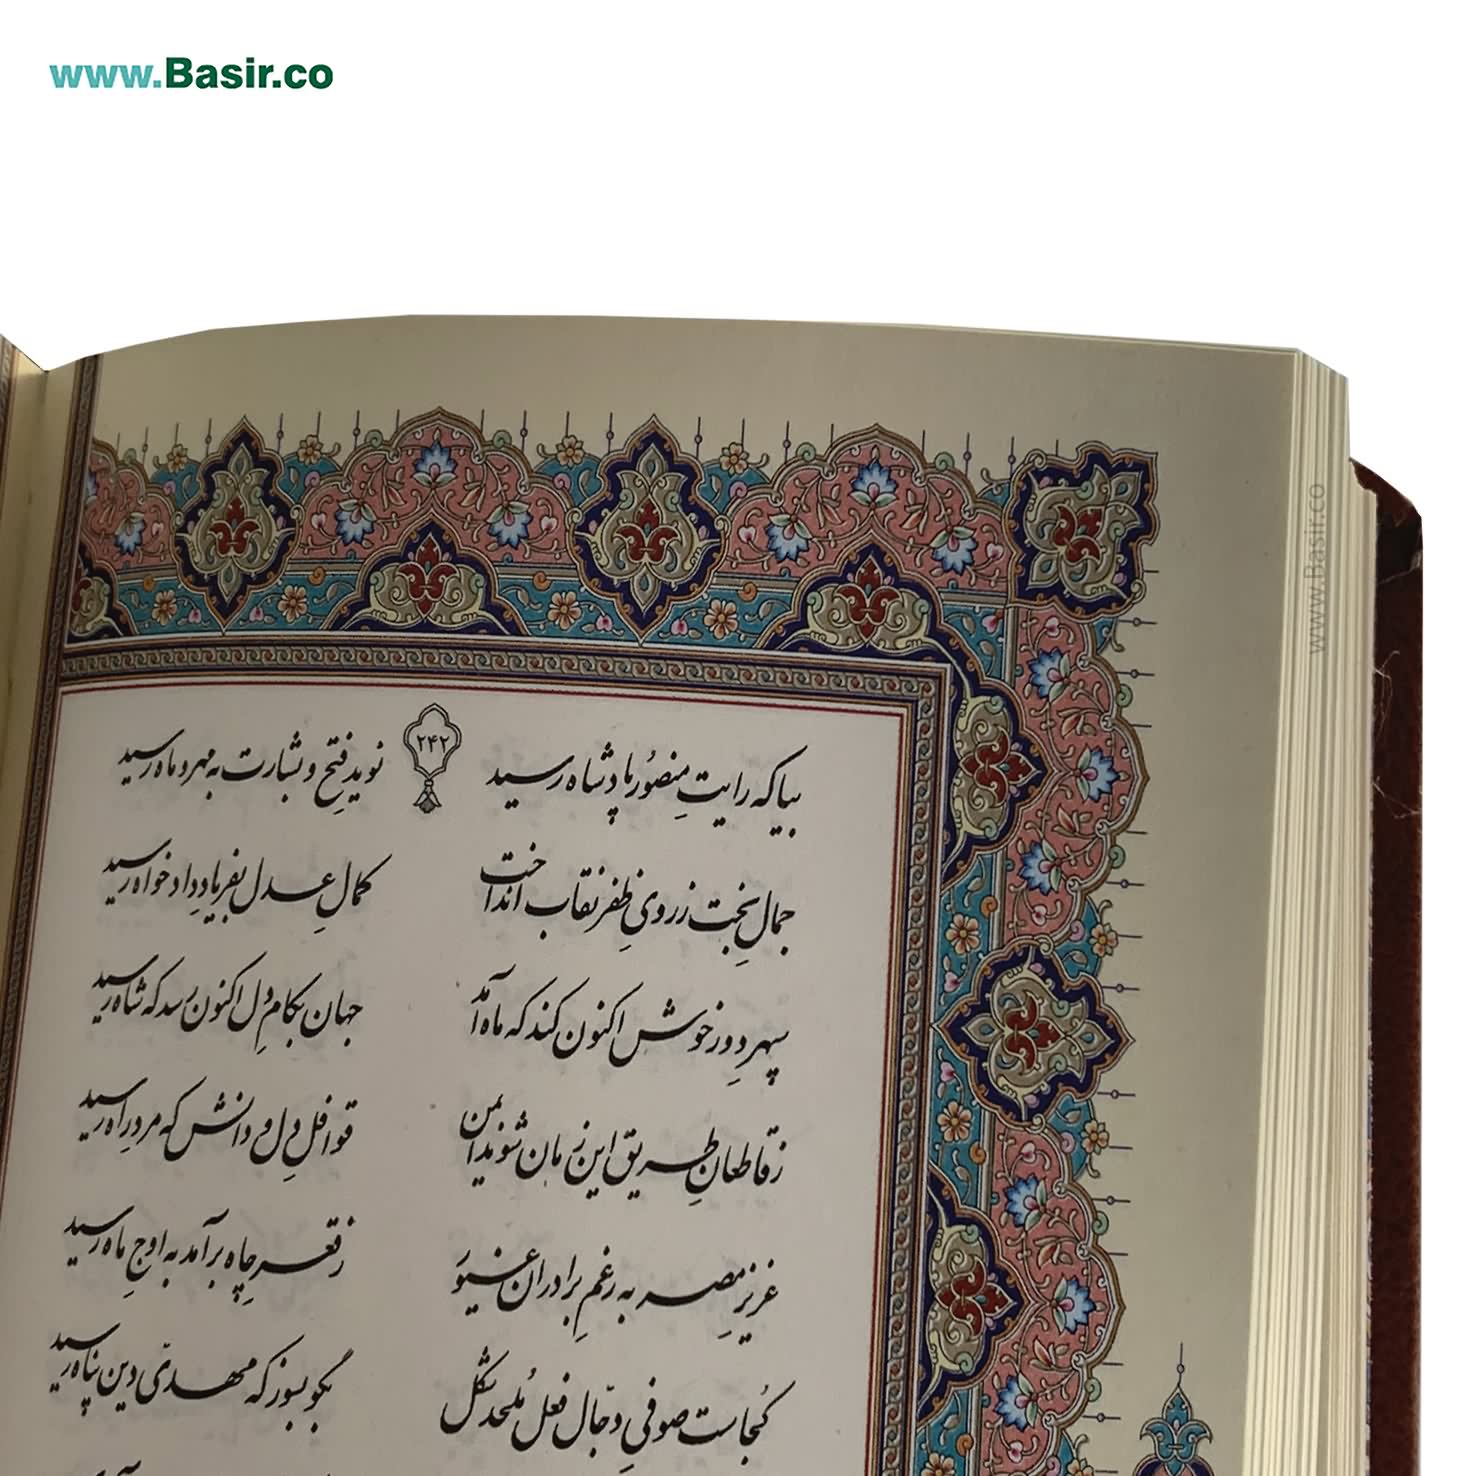 www.Basir.co
۲۴۲
بیا که رایتِ منصورِ پادشاه رسید نویدِ فتح و بشارت به مهر و ماه رسید
جمالِ بخت ز رویِ ظفر نقاب انداخت کمالِ عدل بفریادِ دادخواه رسید
سپهر دورِ خوش اکنون کند که ماه آمد جهان بکامِ دل اکنون رسد که شاه رسید
ز قاطعانِ طریق این زمان شوند ایمن قوافلِ دل و دانش که مردِ راه رسید
عزیزِ مصر به رغمِ برادرانِ غیور ز قعرِ چاه برآمد به اوجِ ماه رسید
کجاست صوفیِ دجّال فعلِ مُلحد شکل بگو بسوز که مهدیّ دین پناه رسید
www.Basir.co